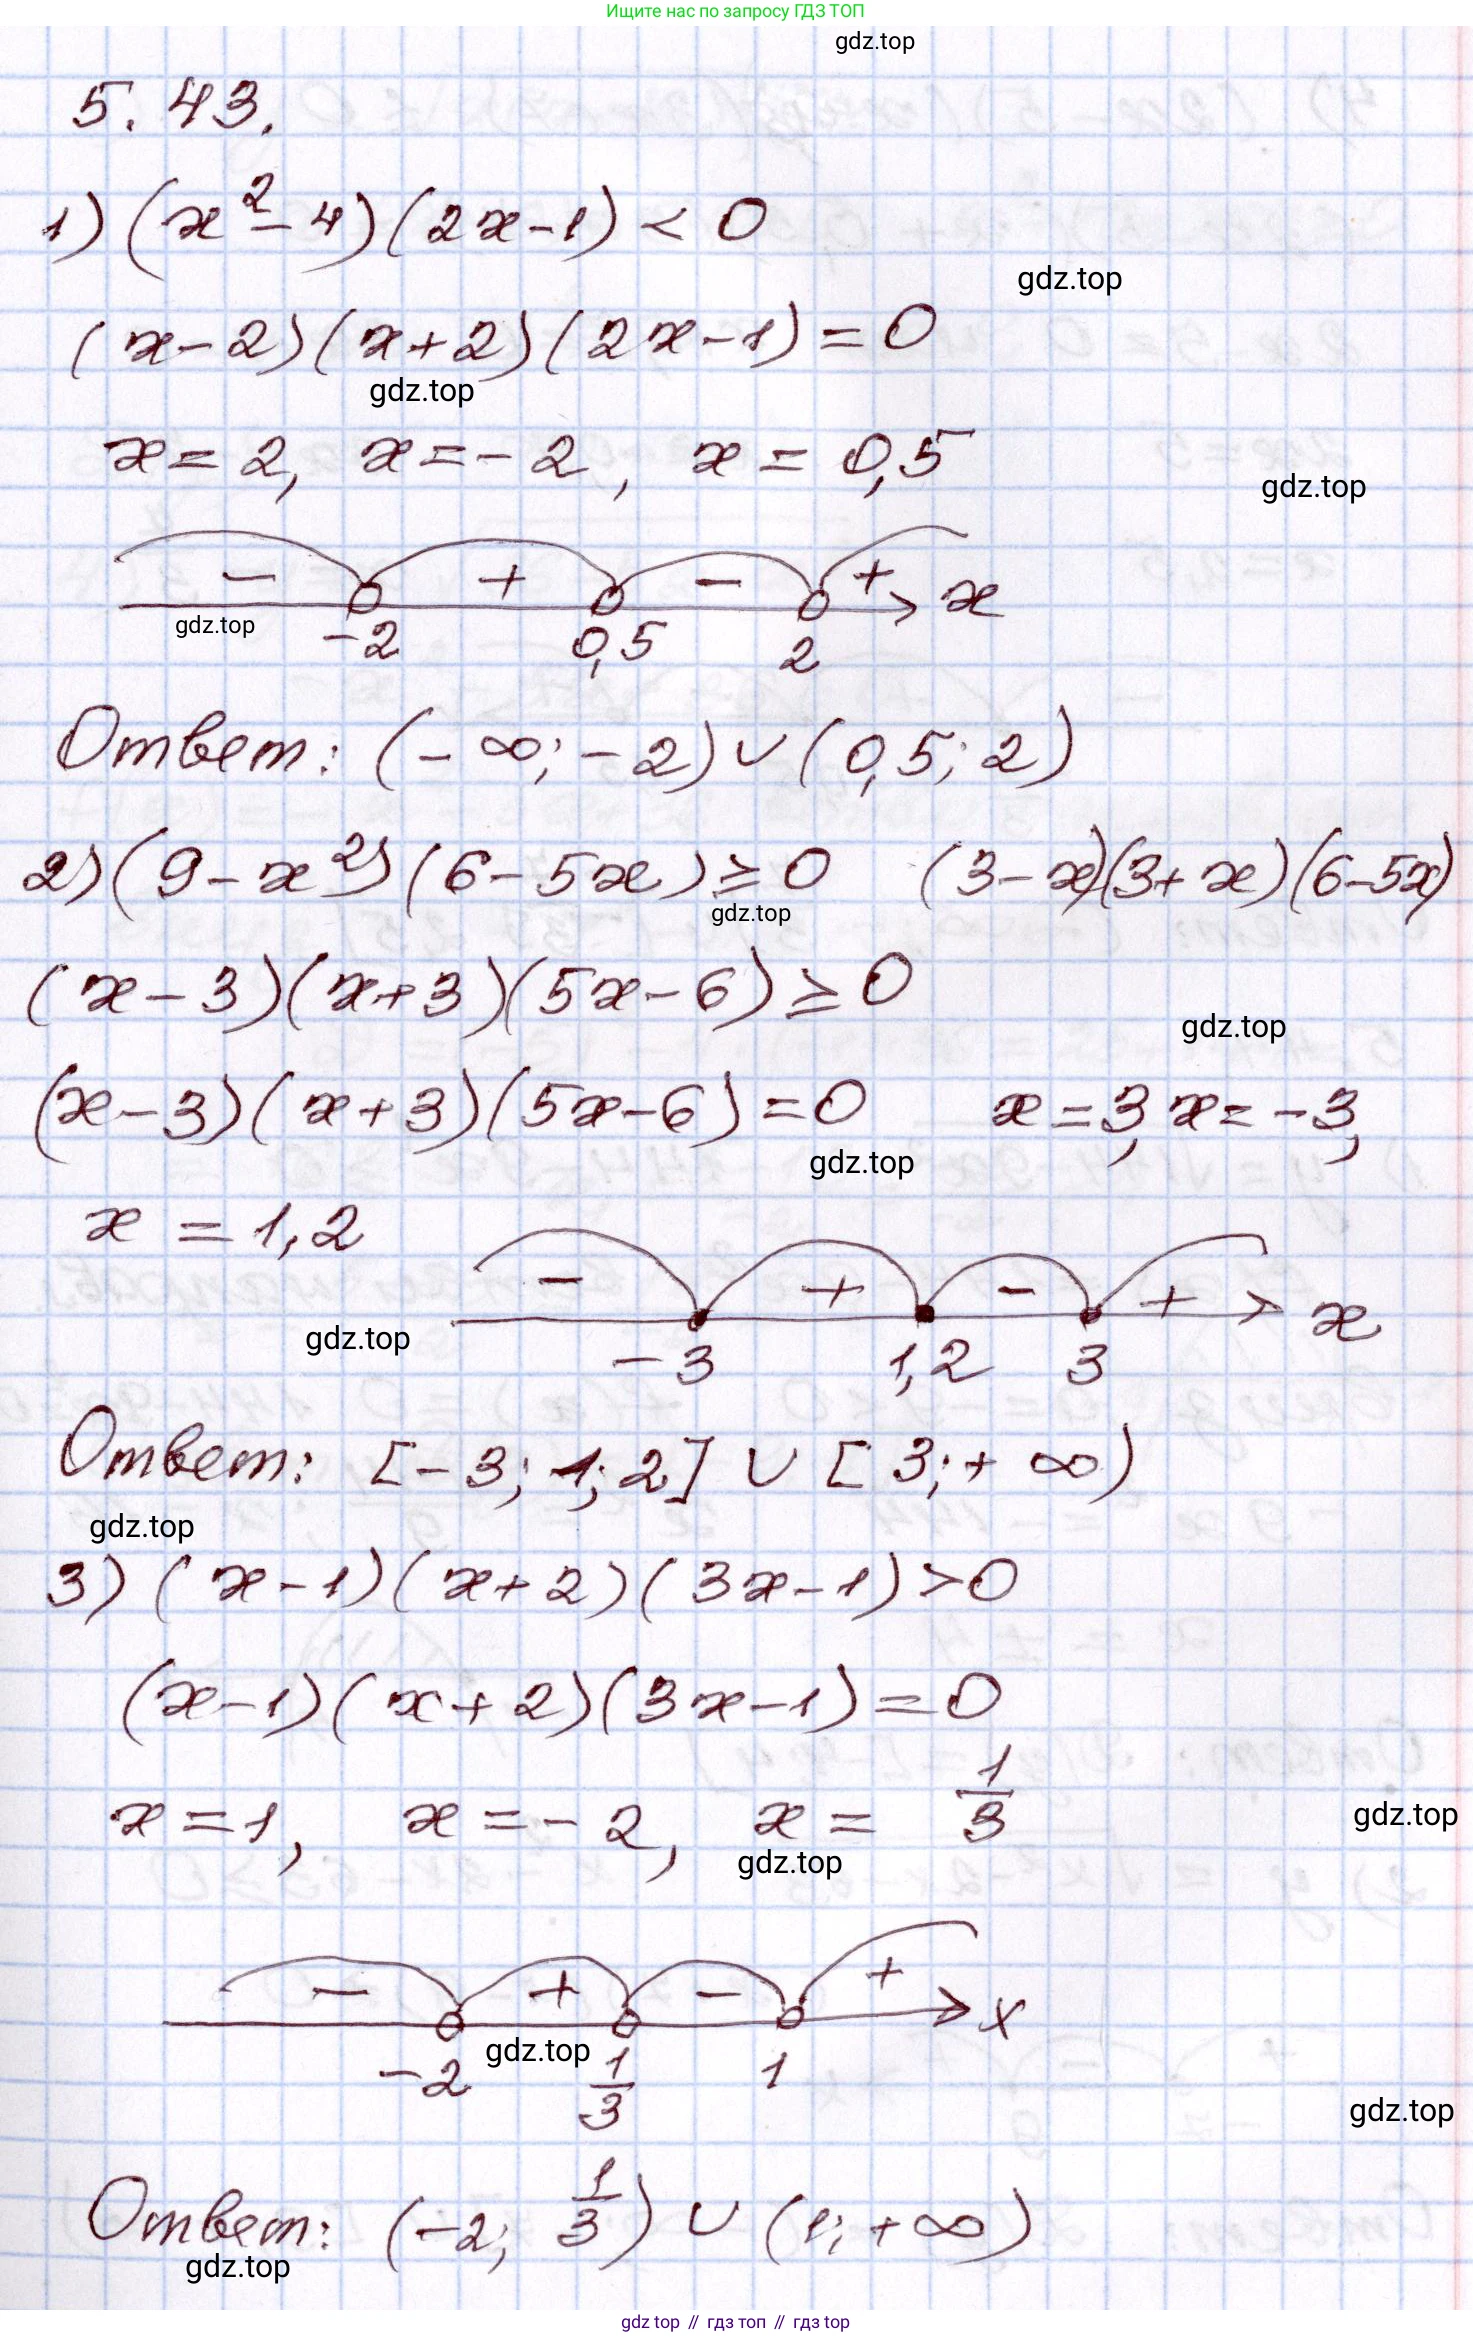 Ищите нас по запросу ГДЗ ТОП
gdz.top
5.43.
1) (x² - 4)(2x - 1) < 0
gdz.top
(x - 2)(x + 2)(2x - 1) = 0
gdz.top
x = 2, x = -2, x = 0,5
gdz.top
- + - + x
gdz.top
-2 0,5 2
Ответ: (-∞; -2) ∪ (0,5; 2)
2) (9 - x²)(6 - 5x) ≥ 0 (3 - x)(3 + x)(6 - 5x)
gdz.top
(x - 3)(x + 3)(5x - 6) ≥ 0
gdz.top
(x - 3)(x + 3)(5x - 6) = 0 x = 3, x = -3,
gdz.top
x = 1,2
- + - + x
gdz.top
-3 1,2 3
Ответ: [-3; 1,2] ∪ [3; +∞)
gdz.top
3) (x - 1)(x + 2)(3x - 1) > 0
(x - 1)(x + 2)(3x - 1) = 0
x = 1, x = -2, x = 1/3
gdz.top
gdz.top
- + - + x
gdz.top
-2 1/3 1
gdz.top
Ответ: (-2; 1/3) ∪ (1; +∞)
gdz.top
gdz.top // гдз топ // гдз top